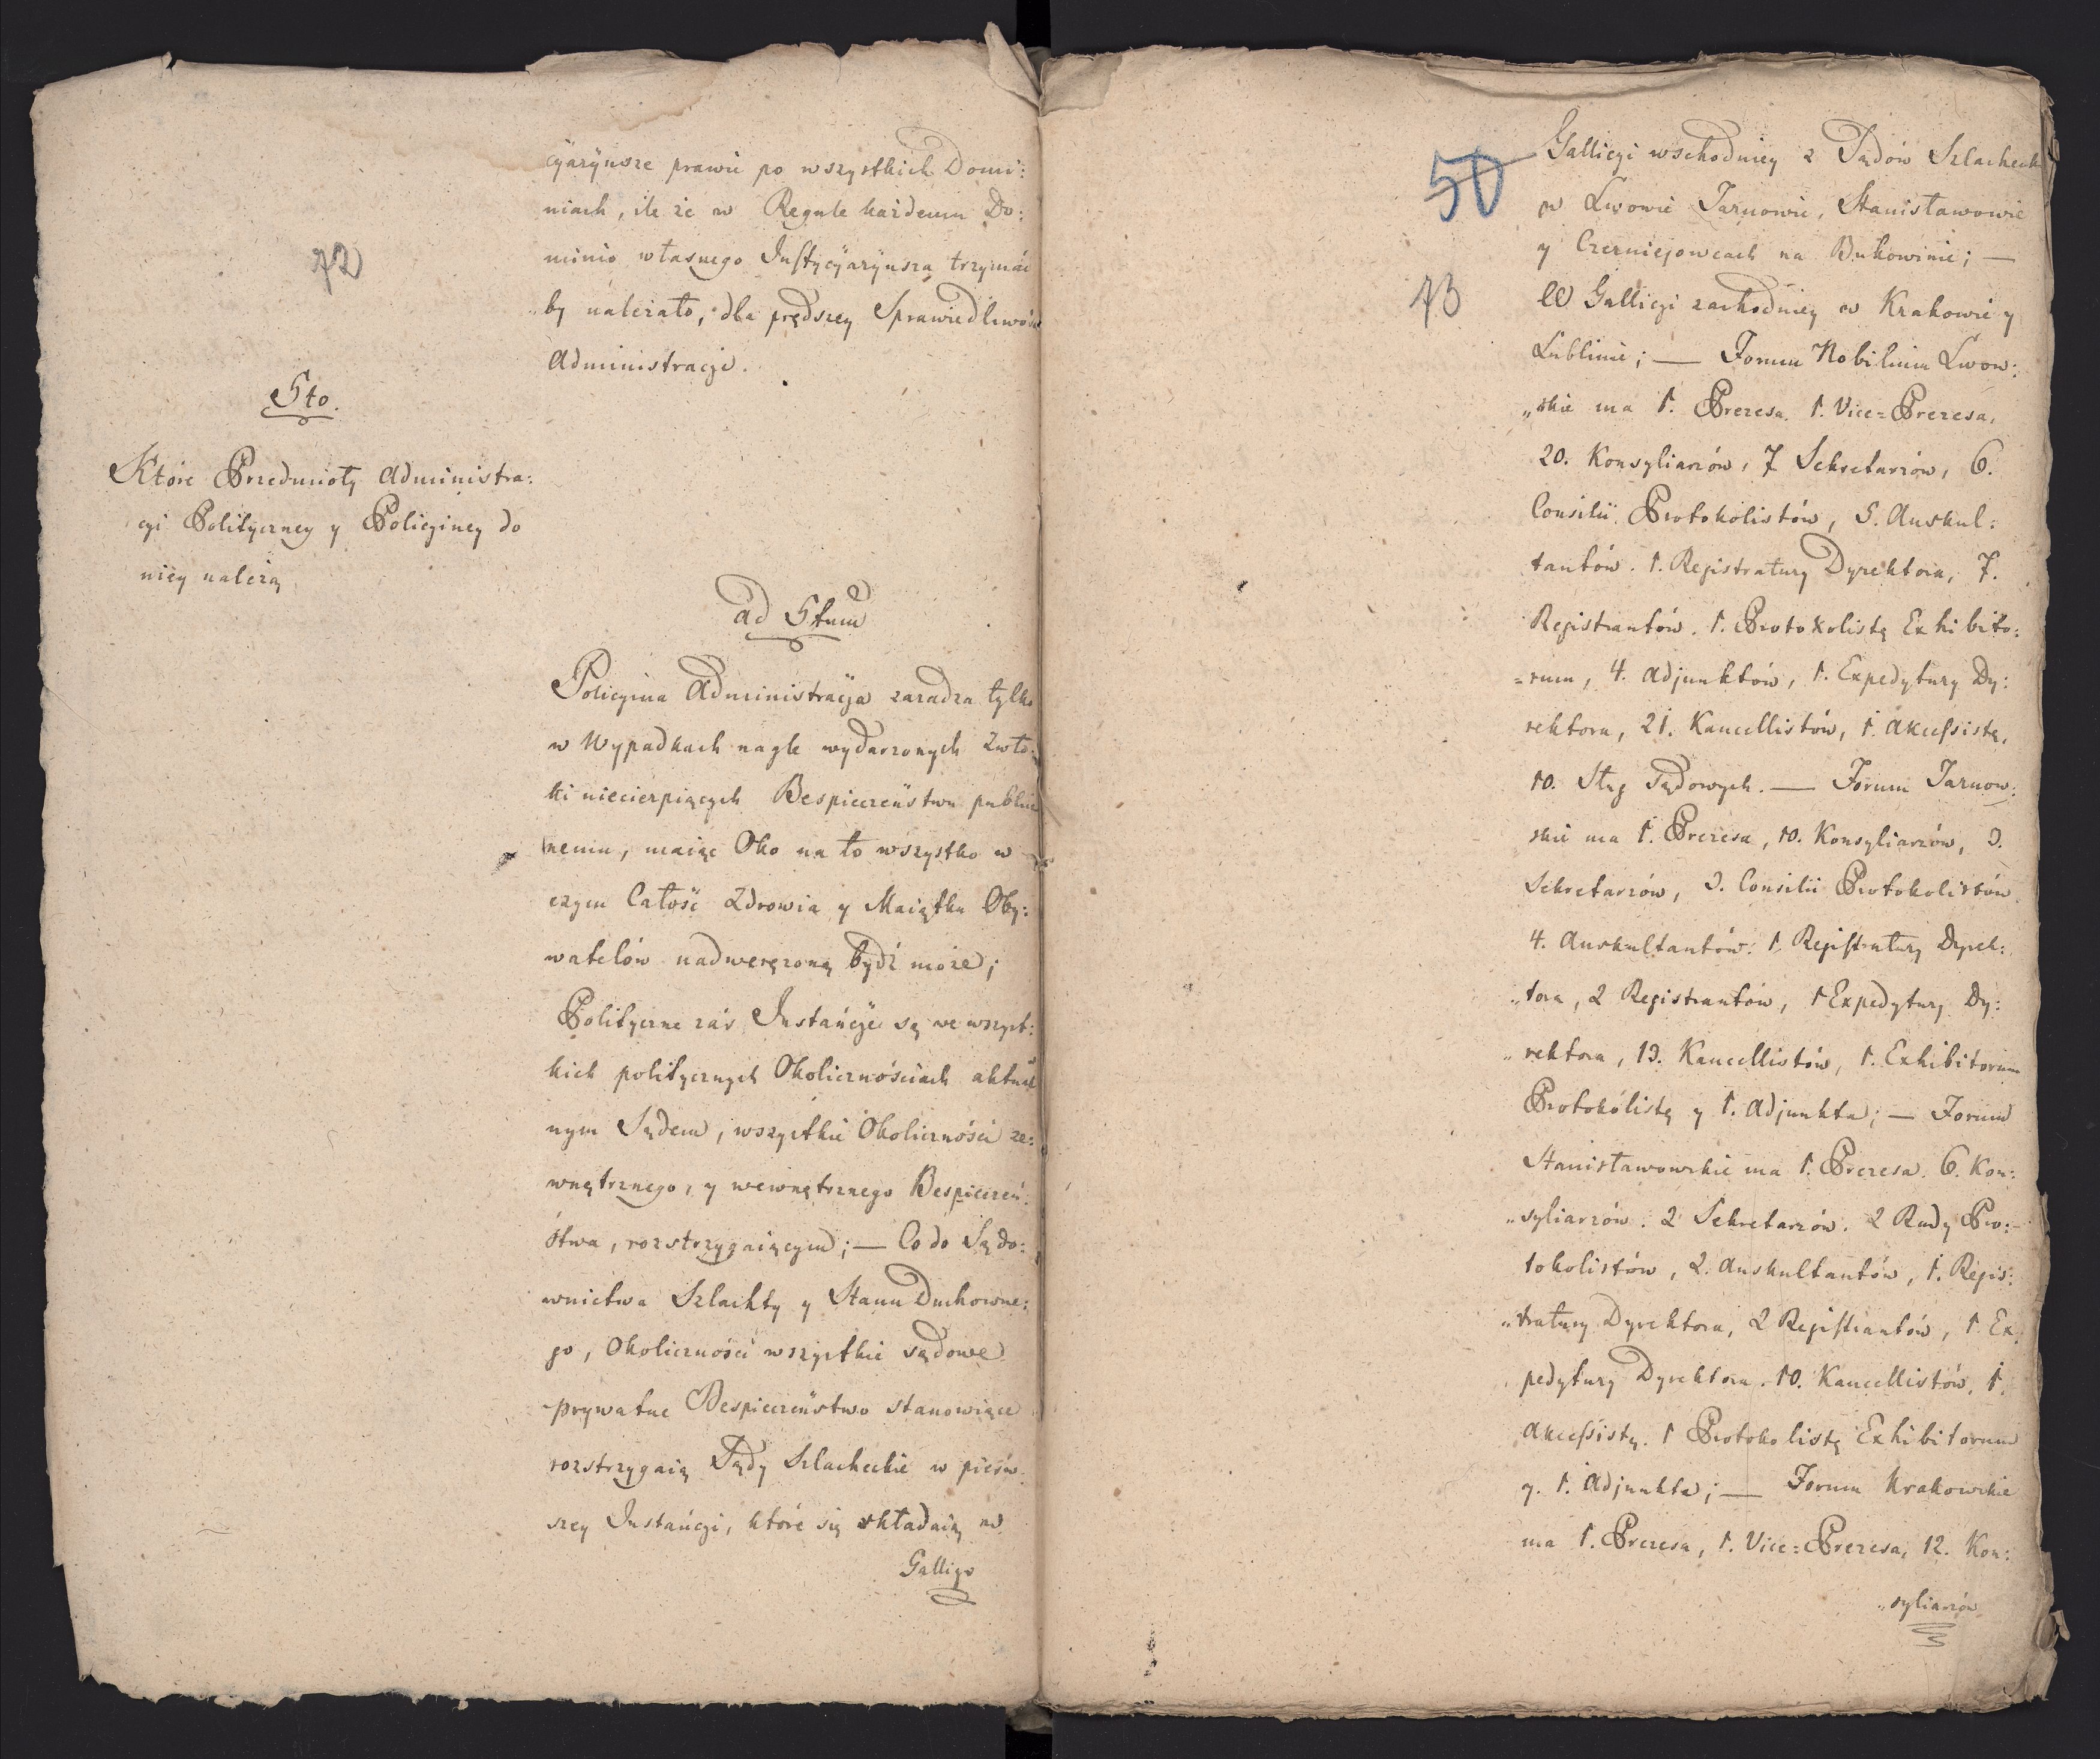 72
5to.
Które Przedmioty Administra:
cyi Polityczney y Policyiney do
niey należą
cÿarÿusze prawie po wszystkich Domi:
niach, ile że w Regule każdemu Do:
minio własnego Justycÿarÿusza trzymać
by należało, dla prędszey Sprawiedliwości
Administracÿi.
ad 5tum
Policyina Administracÿa zaradza tylko
w Wypadkach nagle wydarzonych Zwło:
ki niecierpiących Bespieczeństwu publicz
nemu, maiąc Oko na to wszystko w
czym Całość Zdrowia y Maiątku Oby:
watelów nadweręzoną bydź może;
Polityczne zaś Instancÿe są we wszyst:
kich politycznych Okolicznościach aktual
nym Sądem, wszystkie Okoliczności ze:
wnętrznego, y wewnętrznego Bespieczeń:
stwa, rozstrzygaiącym; — Co do Sądo:
wnictwa Szlachty y Stanu Duchowne:
go, Okoliczności wszystkie sądowe
prywatne Bespieczeństwo stanowiące
rozstrzygaią Sądy Szlacheckie w pierw:
szey Instancyi, które się składaią w
Gallicyi
50
73
Galliciyi wschodniey z Sądów Szlacheck
w Lwowie Tarnowie, Stanisławowie
y Czerniejowcach na Bukowinie; —
W Gallicyi zachodniey w Krakowie y
Lublinie; — Forum Nobilium Lwow:
„skie ma 1. Prezesa. 1. Vice=Prezesa,
20. Konsyliarzów, 7 Sekretarzów, 6.
Consilii Protokolistów, 5. Auskul:
tantów. 1. Registratury Dyrektora, 7.
Registrantów. 1. Protokolistę Exhibito:
=rum, 4. Adjunktów, 1. Expedytury Dy:
rektora, 21. Kancellistów, 1. Akcessistę,
10. Sług Sądowych. — Forum Tarnow:
skie ma 1. Prezesa, 10. Konsyliarzów, 3.
Sekretarzów, 3. Consilii Protokolistów
4. Auskultantów. 1 Registratury Dyrek:
„tora, 2 Registrantów, 1 Expedytury Dy:
„rektora, 13. Kancellistów, 1. Exhibitorum
Protokólistę y 1. Adjunkta; — Forum
Stanisławowskie ma 1. Prezesa. 6. Kon:
„syliarzów. 2 Sekretarzów. 2 Rady Pro:
tokolistów, 2. Auskultantów, 1. Regis:
„tratury Dyrektora, 2 Registrantów, 1. Ex:
pedytury Dyrektora. 10. Kancellistów, 1.
Akcessistę. 1 Protokolistę Exhibitorum
y. 1. Adjunkta; — Forum Krakowskie
ma 1. Prezesa, 1. Vice=Prezesa, 12. Kon:
„syliarzów